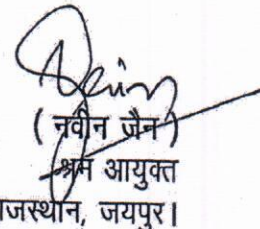 ( नवीन जैन )
श्रम आयुक्त
जस्थान, जयपुर।